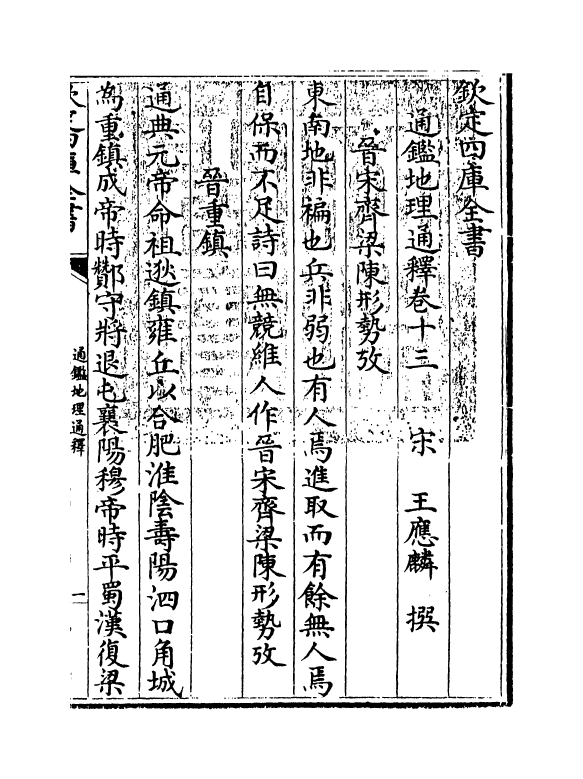 欽定四庫全書
通鑑地理通釋卷十三　宋　王應麟　撰
晉宋齊梁陳形勢攷
東南地非褊也兵非弱也有人焉進取而有餘無人焉
自保而不足詩曰無競維人作晉宋齊梁陳形勢攷
晉重鎮
通典元帝命祖逖鎮雍丘以合肥淮陰壽陽泗口角城
為重鎮成帝時鄼守將退屯襄陽穆帝時平蜀漢復梁
欽定四庫全書
通鑑地理通釋
一